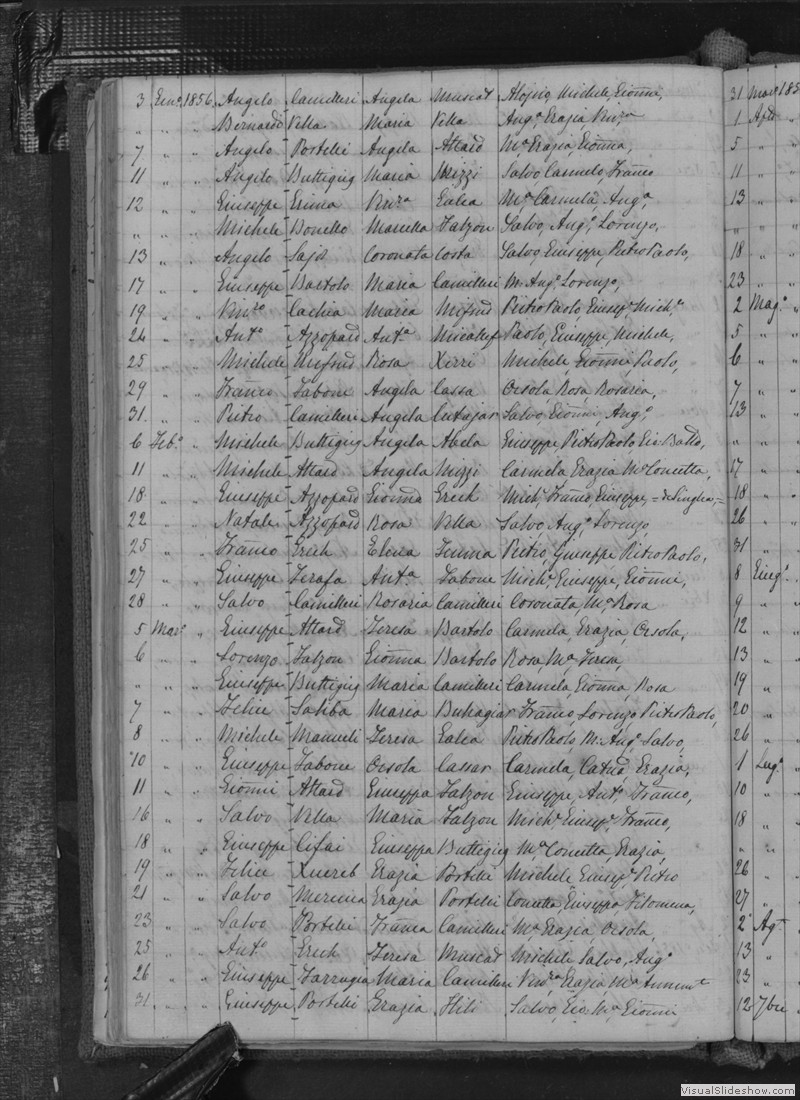 3 Gen.o 1856 Angelo Camilleri Angela Muscat Aloisio, Michele, Gionni,
„ „ „ Bernardo Vella Maria Vella Ang.a Grazia Vin.za
7 „ „ Angelo Portelli Angela Attard M.a Grazia, Gionna,
11 „ „ Angelo Buttigieg Maria Mizzi Salvo Carmelo, Franco
12 „ „ Giuseppe Grima Vin.za Galea M.a Carmela, Ang.a
„ „ „ Michele Bonello Marietta Falzon Salvo, Ang.o Lorenzo,
13 „ „ Angelo Sajd Coronata Costa Salvo Giuseppe, Pietro Paolo,
17 „ „ Giuseppe Bartolo Maria Camilleri M. Ang.o Lorenzo,
19 „ „ Vin.zo Cachia Maria Mifsud Pietro Paolo, Giusep.e Mich.e
24 „ „ Ant.o Azzopard Ant.a Paolo, Giuseppe, Michele,
25 „ „ Michele Mifsud Rosa Xerri Michele, Gionni, Paolo,
29 „ „ Franco Tabone Angela Cassar Orsola, Rosa Rosaria,
31 „ „ Pietro Camilleri Angela Cutajar Salvo, Gionni, Ang.o
6 Feb.o „ Michele Buttigieg Angela Abela Giuseppe, Pietro Paolo Gio: Batta,
11 „ „ Michele Attard Angela Mizzi Carmela, Grazia M.a Concetta,
18 „ „ Giuseppe Azzopard Gionna Grech Mich.e Franco, Giuseppe, = de Singlea =
22 „ „ Natale Azzopard Rosa Vella Salvo, Ang.o Lorenzo,
25 „ „ Franco Grech Elena Pietro, Giuseppe Pietro Paolo,
27 „ „ Giuseppe Zerafa Ant.a Tabone Mich.e Giuseppe, Gionni,
28 „ „ Salvo Camilleri Rosaria Camilleri Coronata M.a Rosa
5 Mar.o „ Giuseppe Attard Teresa Bartolo Carmela, Grazia, Orsola,
6 „ „ Lorenzo Falzon Gionna Bartolo Rosa, M.a Teresa,
„ „ „ Giuseppe Buttigieg Maria Camilleri Carmela, Gionna, Rosa
7 „ „ Felice Saliba Maria Buhagiar Franco, Lorenzo Pietro Paolo,
8 „ „ Michele Mamueli Teresa Galea Pietro Paolo M. Ang.o Salvo,
10 „ „ Giuseppe Tabone Orsola Cassar Carmela, Grazia,
11 „ „ Gionni Attard Giuseppa Falzon Giuseppe, Ant.o Franco,
16 „ „ Salvo Vella Maria Falzon Mich.e Giusep.e Franco,
18 „ „ Giuseppe Cifai Giuseppa Buttigieg M.a Concetta, Grazia,
19 „ „ Felice Xuereb Grazia Portelli Michele Giusep.e Pietro
21 „ „ Salvo Mercieca Grazia Portelli Concetta, Giuseppa, Filomena,
23 „ „ Salvo Portelli Franca Camilleri M.a Grazia Orsola
25 „ „ Ant.o Grech Teresa Muscat Michele Salvo, Ang.o
26 „ „ Giuseppe Farrugia Maria Camilleri Vin.za Grazia M.a Annun.ta
31 „ „ Giuseppe Portelli Grazia Hili Salvo, Gio. M.a Gionni
31 Mar.o 185
1 Aple „
5 „ „
11 „ „
13 „ „
„ „ „
18 „ „
23 „ „
2 Mag.o „
5 „ „
6 „ „
7 „ „
13 „ „
„ „ „
17 „ „
18 „ „
26 „ „
31 „ „
8 Giug.o „
9 „ „
12 „ „
13 „ „
19 „
20 „
26 „
1 Lug.o
10 „
18 „
„ „
26 „
27 „
2 Ag.to
13 „
23 „
12 7bre
VisualSlideshow.com